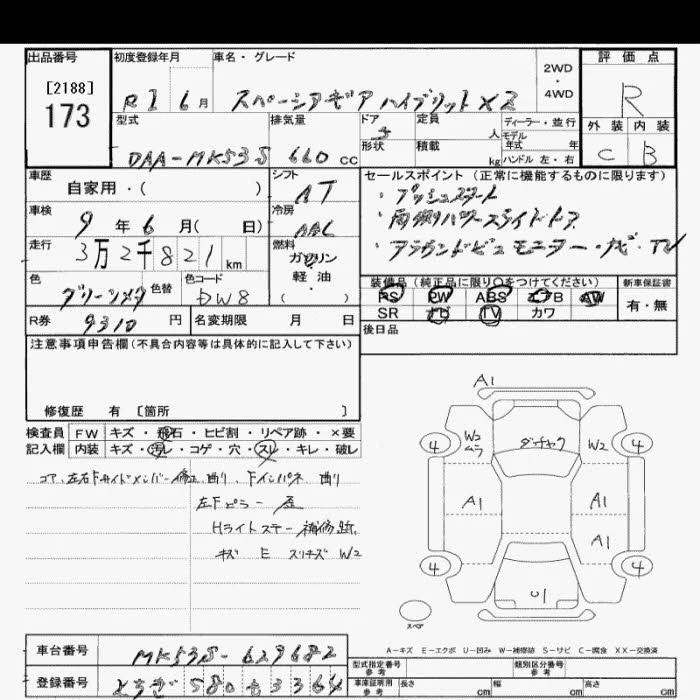 出品番号
[2188]
173
初度登録年月
R1 6月
車名・グレード
スペーシアギア ハイブリットXZ
2WD
・
4WD
評価点
R
外装 内装
C B
型式
DAA-MK53S
排気量
660 cc
ドア
5
定員
人
形状
積載
kg
ディーラー・並行
モデル
年式 年
ハンドル 左・右
車歴
自家用・( )
シフト
AT
セールスポイント (正常に機能するものに限ります)
・プッシュスタート
・両側パワースライドドア
・アラウンドビューモニター・ナビ・TV
車検
9年6月( 日)
冷房
AAC
走行
3万2千821km
燃料
ガソリン
軽油・
( )
色
グリーンメタ
色替
色コード
DW8
装備品 (純正品に限り○をつけてください)
PS PW ABS エアB AW
SR ナビ TV カワ
新車保証書
有・無
R券
9310円
名変期限 月 日
後日品
注意事項申告欄 (不具合内容等は具体的に記入して下さい)
修復歴 有 [箇所 ]
検査員
記入欄
FW キズ・飛石・ヒビ割・リペア跡・×要
内装 キズ・汚レ・コゲ・穴・スレ・キレ・破レ
コア、左右Fサイドメンバー修正 曲り、Fインパネ 曲り
左Fピラー 歪
Hライトステー 補修跡
キズ E スリキズ W2
A1
4
W2
ムラ
ダッチャク
W2
4
A1
A1
A1
4
U1
4
スペア
A-キズ E-エクボ U-凹み W-補修跡 S-サビ C-腐食 XX-交換済
車台番号
MK53S-629682
登録番号
とちぎ 580 も 3364
型式指定番号
参考
類別区分番号
参考
車庫証明用
参考
長さ cm
幅 cm
高さ cm